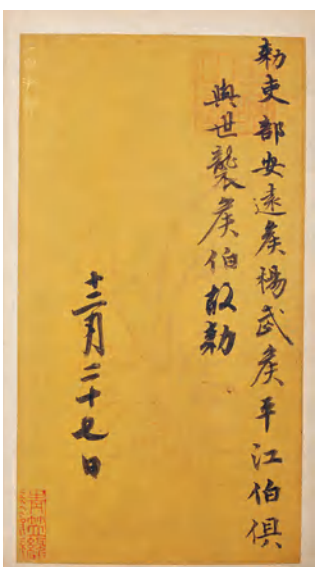 勑吏部安遠侯楊武侯平江伯俱
與世襲侯伯故勑
十二月二十七日